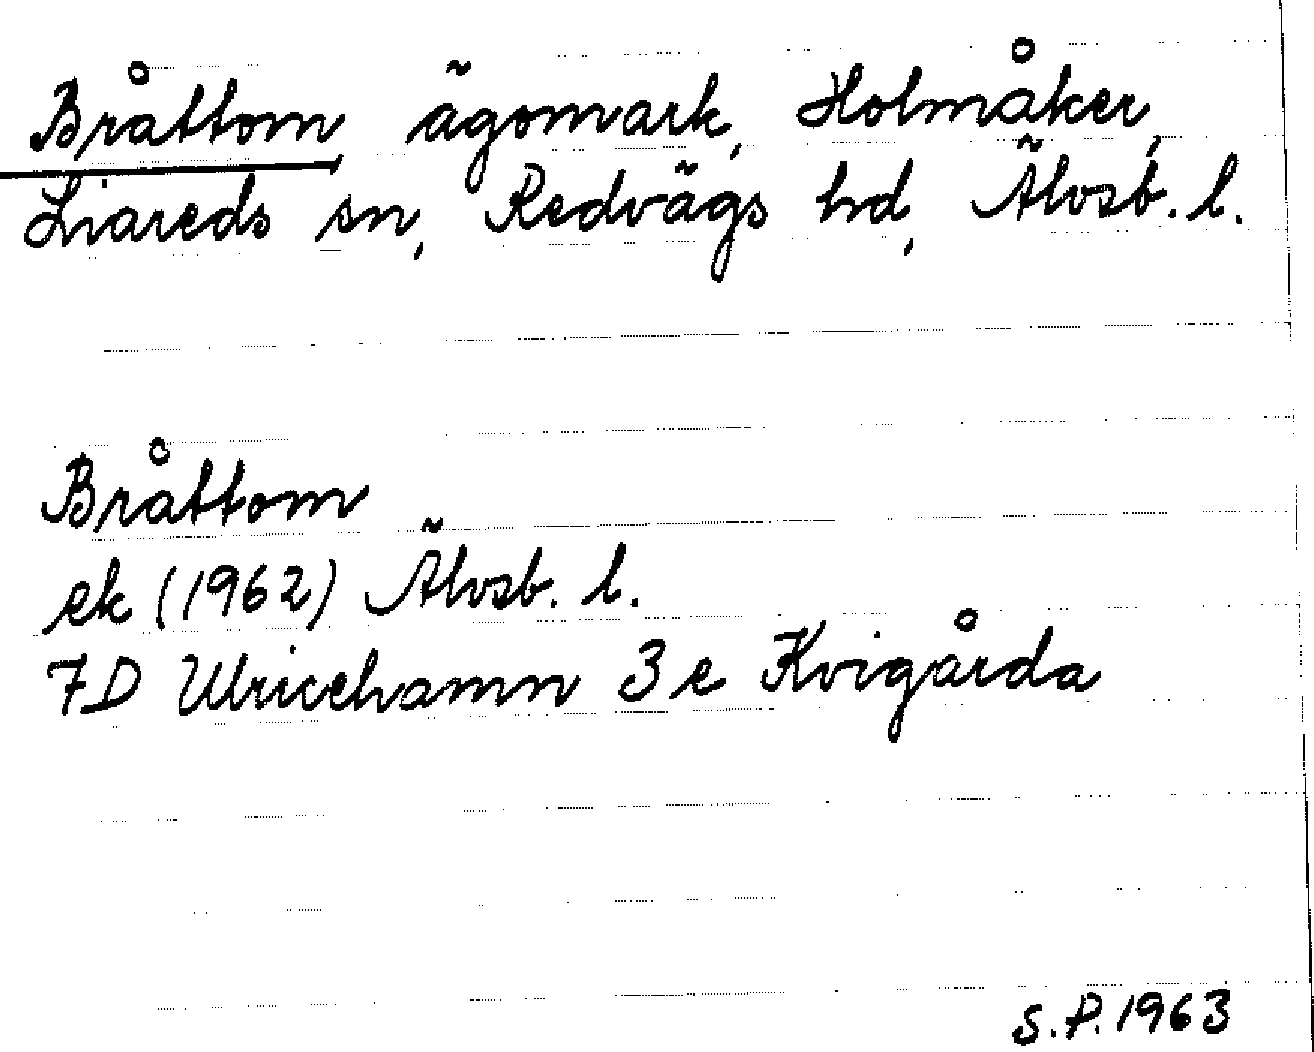 Bråttom ägomark, Holmåker,
Liareds sn, Redvägs hd, Älvsb. l.
Bråttom
ek (1962) Älvsb. l.
7D Ulricehamn 3e Kvigårda
S.P. 1963